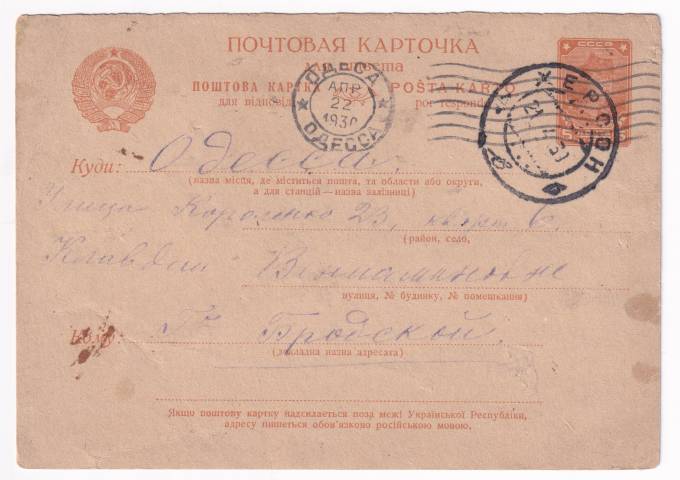 ПОЧТОВАЯ КАРТОЧКА
для ответа
ПОШТОВА КАРТКА
POŜTA KARTO
для відповіді
por respondo
СССР
ОДЕССА
АПР
22
1930
ОДЕССА
ХЕРСОН
21
Куди: Одесса.
(назва місця, де міститься пошта, та області або округи,
а для станцій — назва залізниці)
Улица Короленко 23, кварт 6.
(район, село,
Клавдии Вениаминовне
вулиця, № будинку, № помешкання)
Кому: Гр Бродской.
(докладна назва адресата)
Якщо поштову картку надсилається поза межі Української Республіки,
адресу пишеться обов'язково російською мовою.